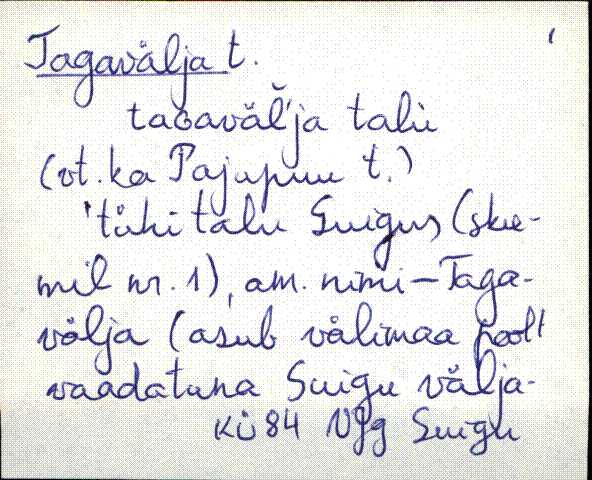 Tagavälja t.
taGaväl̆'ja talu
(vt. ka Pajupuu t.)
'tühi talu Suigus (ske-
mil nr. 1), am. nimi - Taga-
välja (asub välimaa poolt
vaadatuna Suigu välja-
KÜ 84 VJg Suigu